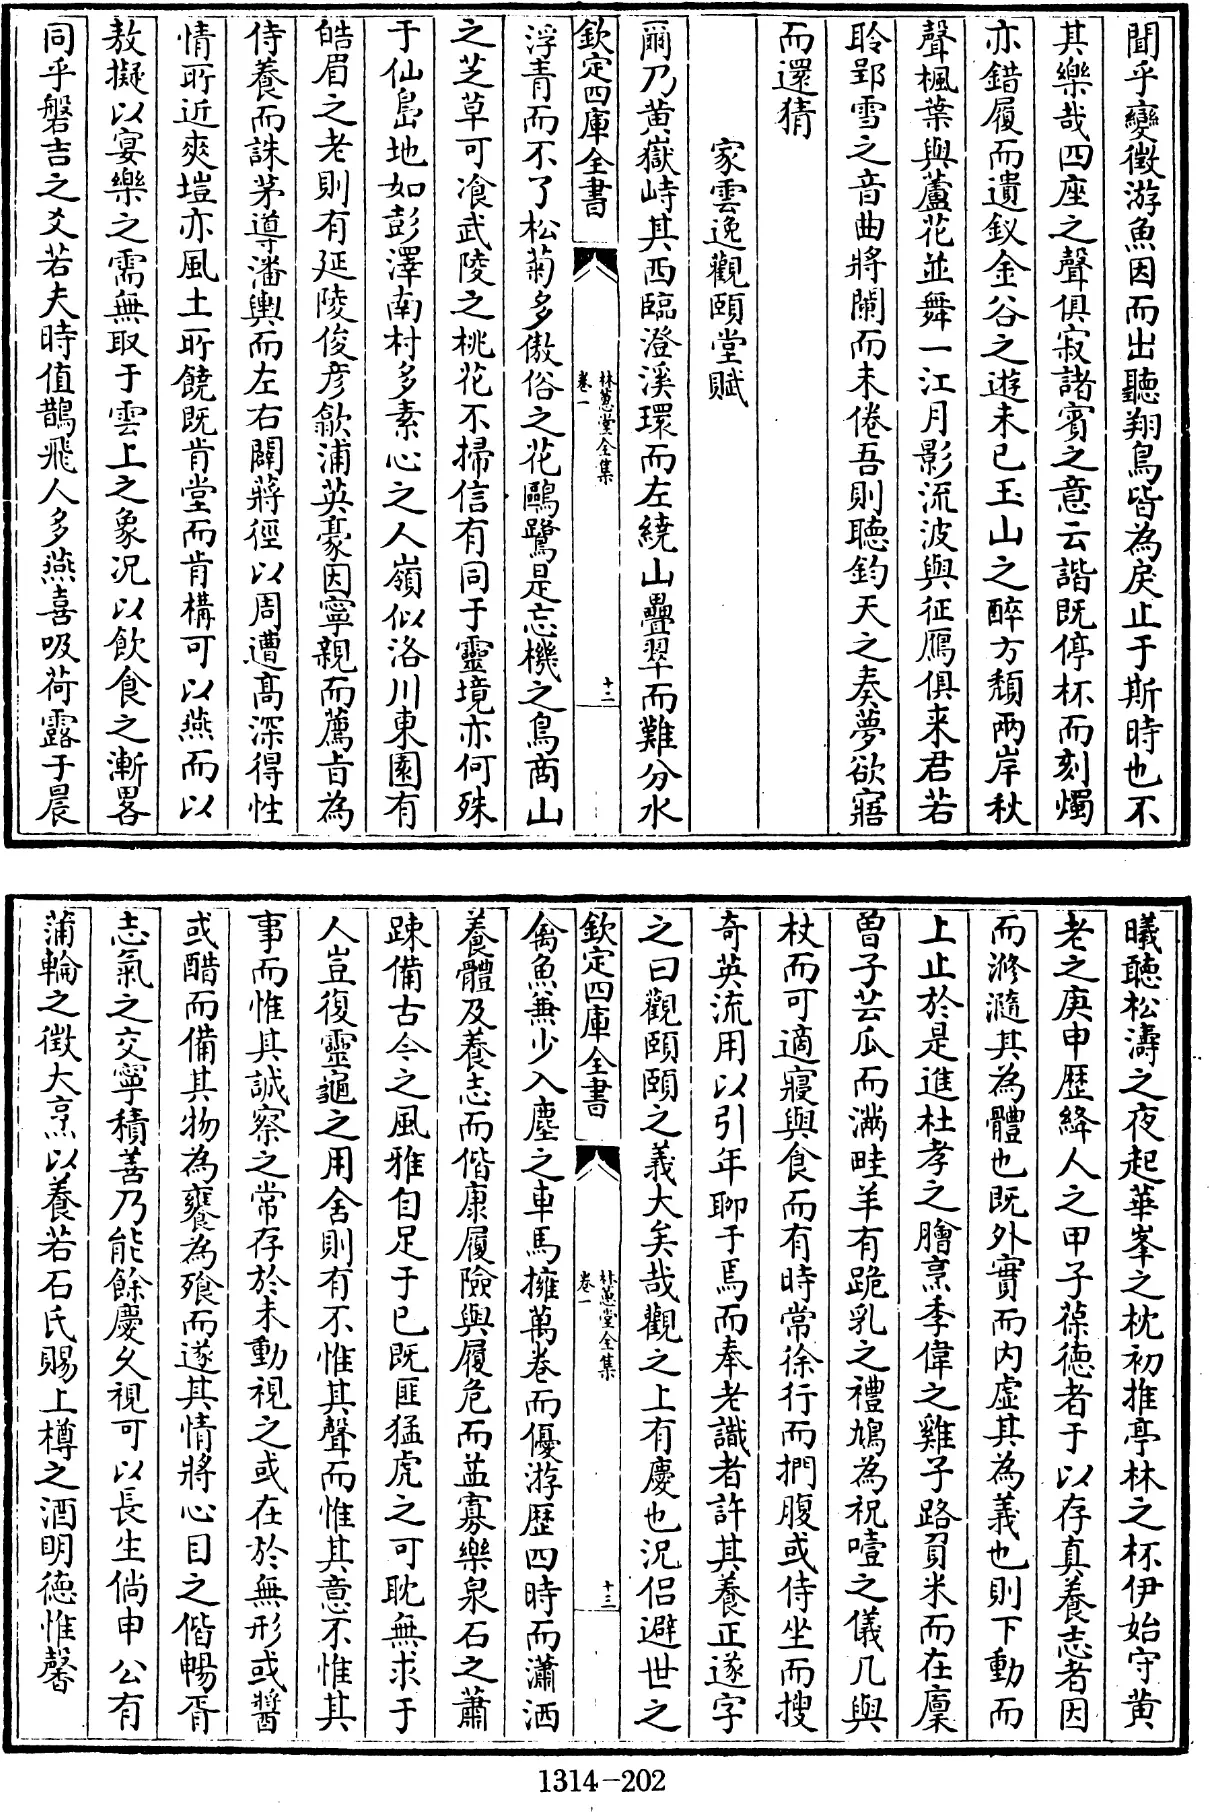 聞乎變徵游魚因而出聽翔鳥皆為戾止于斯時也不
其樂哉四座之聲俱寂諸賓之意云諧既停杯而刻燭
亦錯履而遺釵金谷之遊未已玉山之醉方頽兩岸秋
聲楓葉與蘆花並舞一江月影流波與征鴈俱来君若
聆郢雪之音曲將闌而未倦吾則聽鈞天之奏夢欲寤
而還猜
家雲逸觀頤堂賦
爾乃黄嶽峙其西臨澄溪環而左繞山疊翠而難分水
欽定四庫全書
林蕙堂全集
卷一
十二
浮青而不了松菊多傲俗之花鷗鷺是忘機之鳥商山
之芝草可飡武陵之桃花不掃信有同于靈境亦何殊
于仙島地如彭澤南村多素心之人嶺似洛川東園有
皓眉之老則有延陵俊彦歙浦英豪因寧親而薦㫖為
侍養而誅茅導潘輿而左右闢蔣徑以周遭髙深得性
情所近爽塏亦風土所饒既肯堂而肯構可以燕而以
敖擬以宴樂之需無取于雲上之象况以飲食之漸畧
同乎磐吉之爻若夫時值鵲飛人多燕喜吸荷露于晨
曦聽松濤之夜起華峯之枕初推亭林之杯伊始守黄
老之庚申歴絳人之甲子葆德者于以存真養志者因
而滫瀡其為體也既外實而内虚其為義也則下動而
上止於是進杜孝之膾烹季偉之雞子路負米而在廩
曾子芸瓜而滿畦羊有跪乳之禮鳩為祝噎之儀几與
杖而可適寢與食而有時常徐行而捫腹或侍坐而搜
奇英流用以引年聊于焉而奉老識者許其養正遂字
之曰觀頤頤之義大矣哉觀之上有慶也況侣避世之
欽定四庫全書
林蕙堂全集
卷一
十三
禽魚兼少入塵之車馬擁萬卷而優游歴四時而瀟洒
養體及養志而偕康履險與履危而益寡樂泉石之蕭
踈備古今之風雅自足于已既匪猛虎之可耽無求于
人豈復靈龜之用舍則有不惟其聲而惟其意不惟其
事而惟其誠察之常存於未動視之或在於無形或醬
或醋而備其物為饔為飱而遂其情將心目之偕暢胥
志氣之交寧積善乃能餘慶久視可以長生倘申公有
蒲輪之徴大烹以養若石氏賜上樽之酒明德惟馨
1314-202